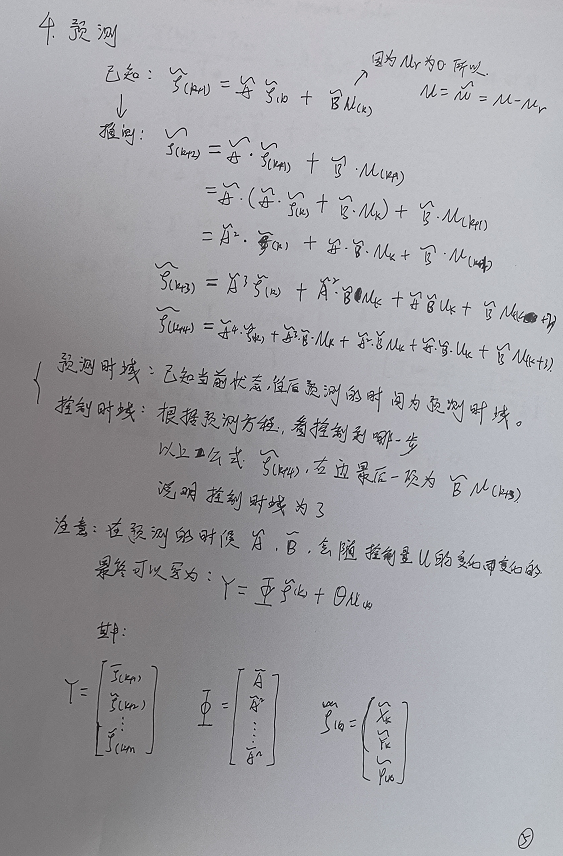 4. 预测
因为 Ur 为0. 所以
已知: ξ̃(k+1) = Ã ξ̃(k) + B̃ U(k)
U = Ũ = U - Ur
↓
推测: ξ̃(k+2) = Ã · ξ̃(k+1) + B̃ · U(k+1)
= Ã · (Ã · ξ̃(k) + B̃ · Uk) + B̃ · U(k+1)
= Ã² · ξ̃(k) + Ã · B̃ · Uk + B̃ · U(k+1)
ξ̃(k+3) = Ã³ ξ̃(k) + Ã² · B̃ Uk + Ã B̃ Uk + B̃ U(k+2)
ξ̃(k+4) = Ã⁴ · ξ̃(k) + Ã³ · B̃ · Uk + Ã² · B̃ Uk + Ã · B̃ · Uk + B̃ U(k+3)
预测时域: 已知当前状态,往后预测的时间为预测时域。
控制时域: 根据预测方程,看控制到哪一步
以上公式 ξ̃(k+4), 右边最后一项为 B̃ U(k+3)
说明控制时域为3
注意: 在预测的时候 Ã, B̃, 会随控制量U的变化而变化的
最终可以写为: Y = Φ ξ̃(k) + ΘU(k)
其中:
Y = [ξ̃(k+1) ξ̃(k+2) ⋮ ξ̃(k+n] Φ = [Ã Ã² ⋮ Ãⁿ] ξ̃(k) = [X̃k Ỹk φ̃(k)]
⑤